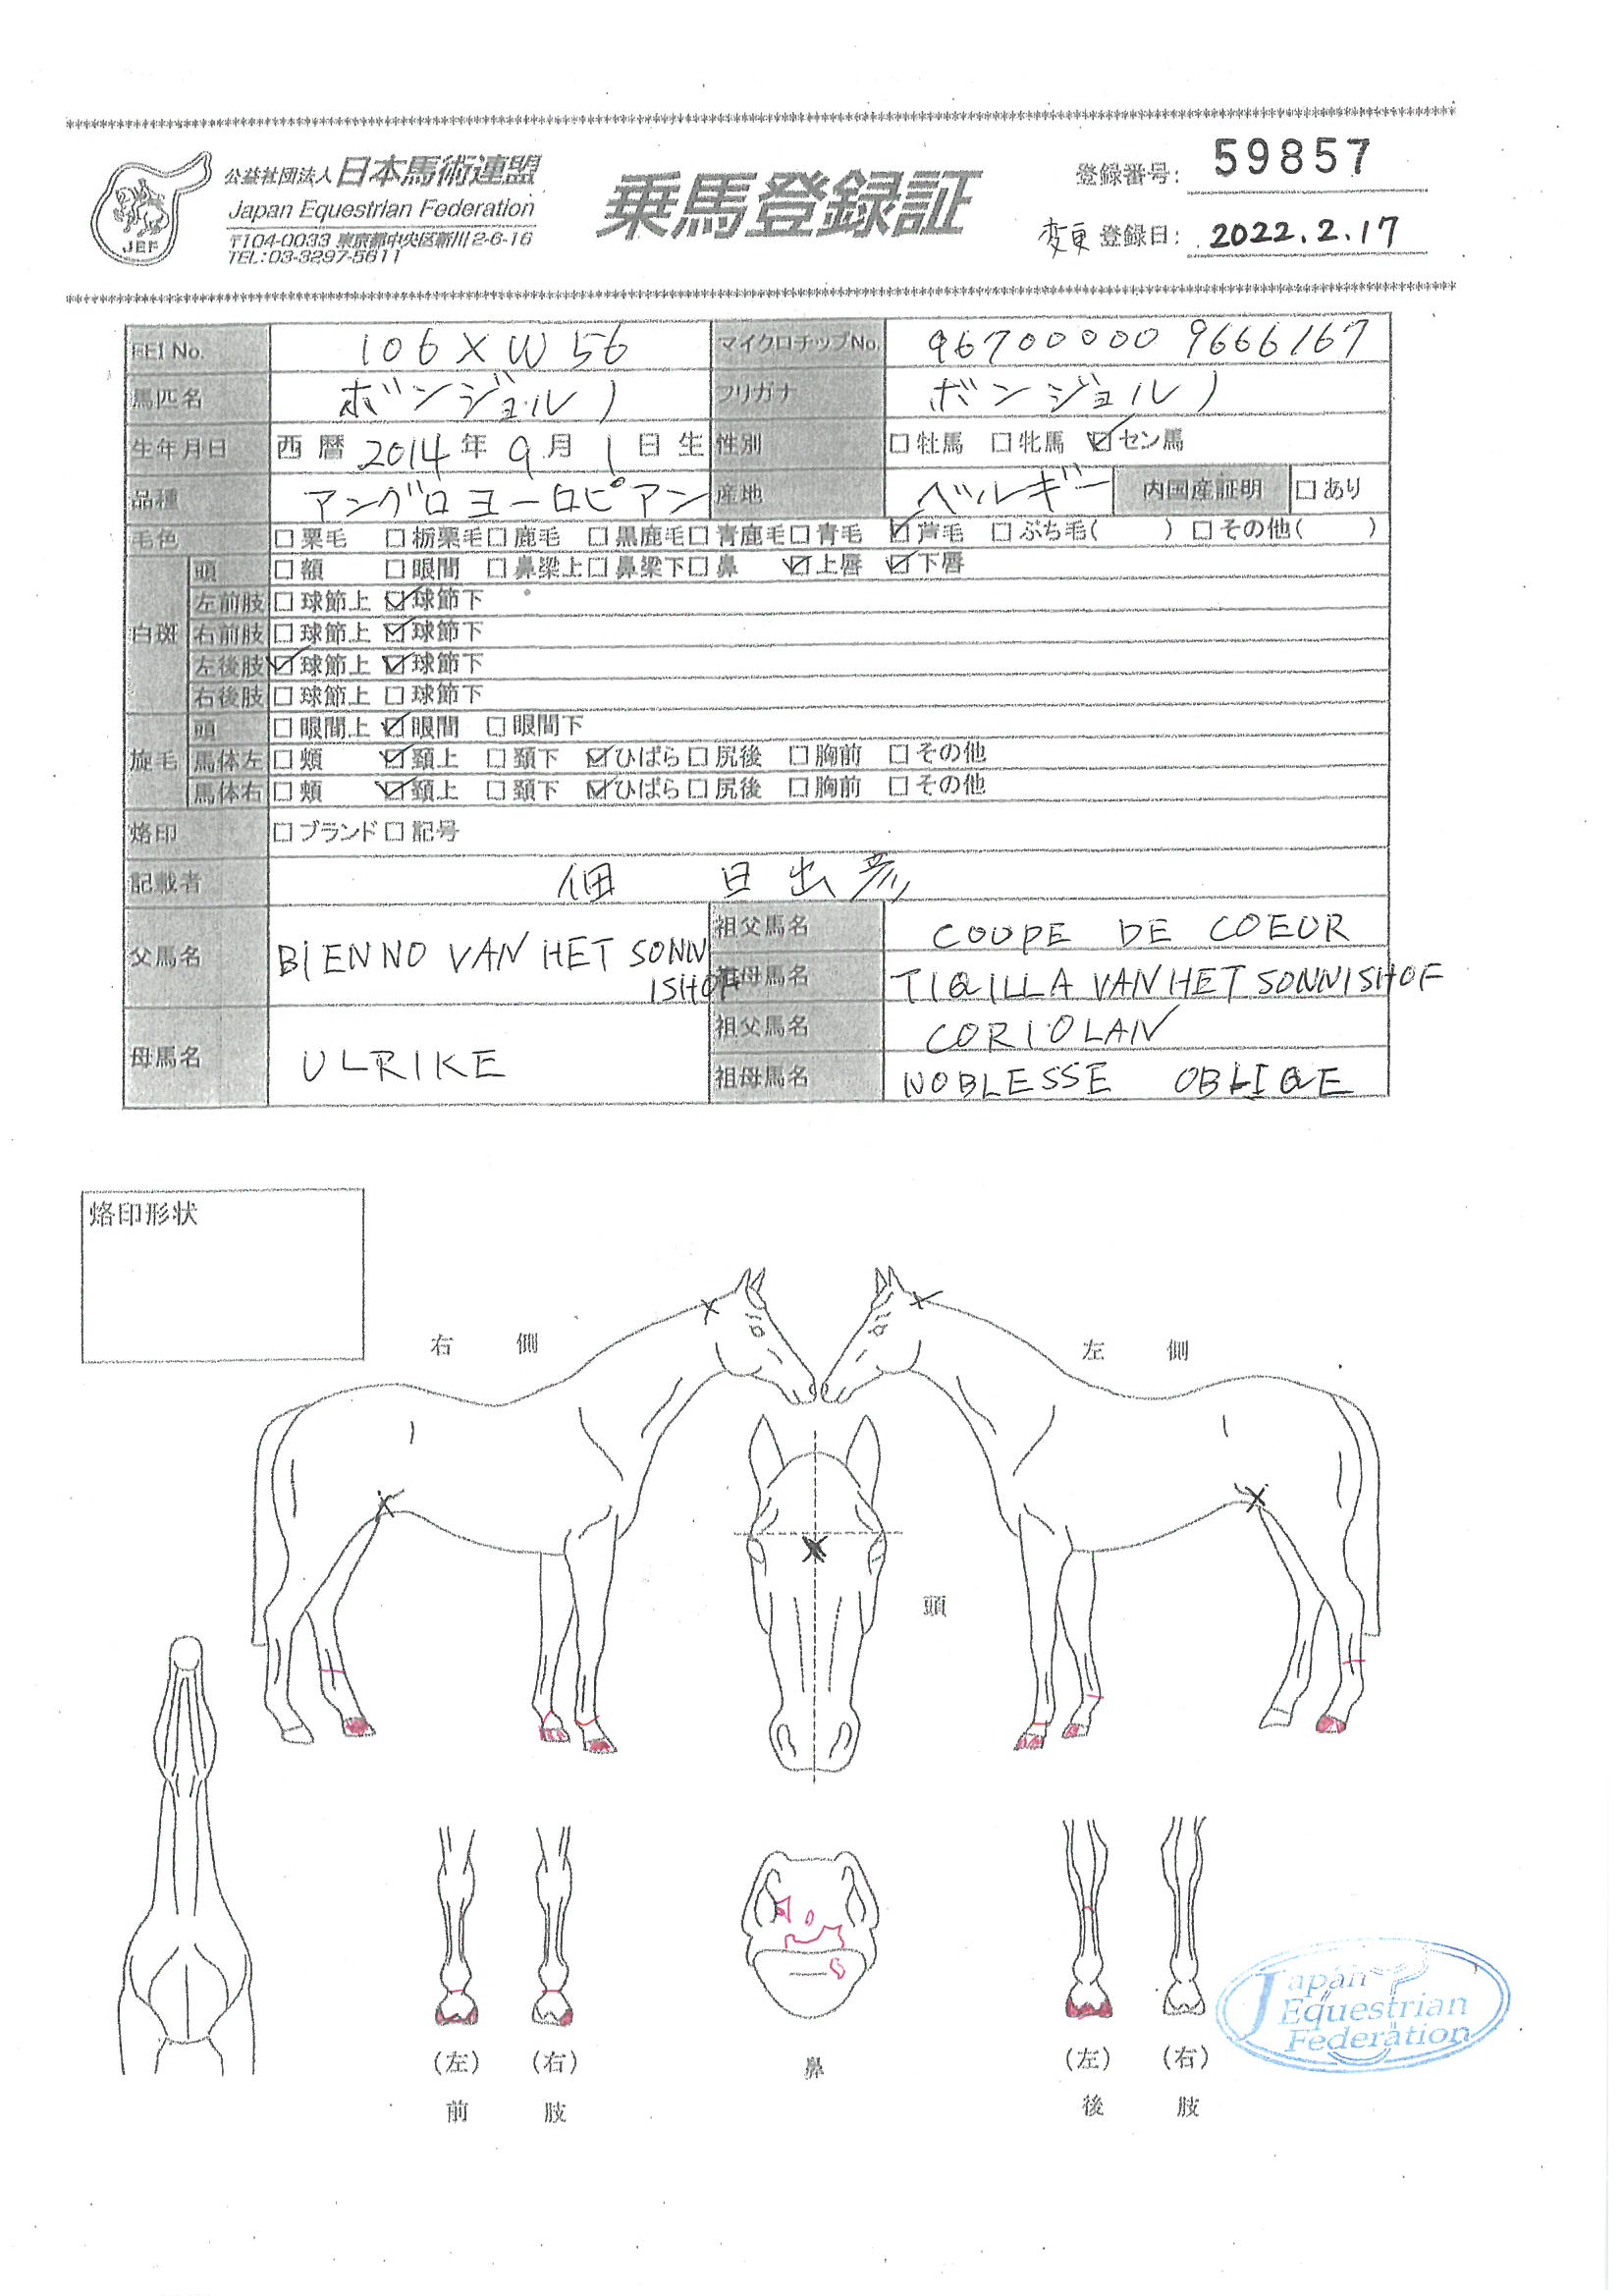 公益社団法人日本馬術連盟
Japan Equestrian Federation
〒104-0033 東京都中央区新川2-6-16
TEL:03-3297-5611
JEF
乗馬登録証
登録番号: 59857
変更 登録日: 2022.2.17
FEI No. 106XW56 マイクロチップNo. 967000009666167
馬匹名 ボンジョルノ フリガナ ボンジョルノ
生年月日 西暦 2014 年 9 月 1 日生 性別 □牡馬 □牝馬 ☑セン馬
品種 アングロヨーロピアン 産地 ベルギー 内国産証明 □あり
毛色 □栗毛 □栃栗毛 □鹿毛 □黒鹿毛 □青鹿毛 □青毛 ☑芦毛 □ぶち毛( ) □その他( )
白斑 頭 □額 □眼間 □鼻梁上 □鼻梁下 □鼻 ☑上唇 ☑下唇
左前肢 □球節上 ☑球節下
右前肢 □球節上 ☑球節下
左後肢 ☑球節上 ☑球節下
右後肢 □球節上 □球節下
旋毛 頭 □眼間上 ☑眼間 □眼間下
馬体左 □頬 ☑頚上 □頚下 ☑ひばら □尻後 □胸前 □その他
馬体右 □頬 ☑頚上 □頚下 ☑ひばら □尻後 □胸前 □その他
烙印 □ブランド □記号
記載者 佃 日出彦
父馬名 BIENNO VAN HET SONNISHOF
祖父馬名 COUPE DE COEUR
祖母馬名 TIQILLA VAN HET SONNISHOF
母馬名 ULRIKE
祖父馬名 CORIOLAN
祖母馬名 NOBLESSE OBLIQE
烙印形状
右側
左側
頭
(左) (右)
前肢
鼻
(左) (右)
後肢
Japan
Equestrian
Federation